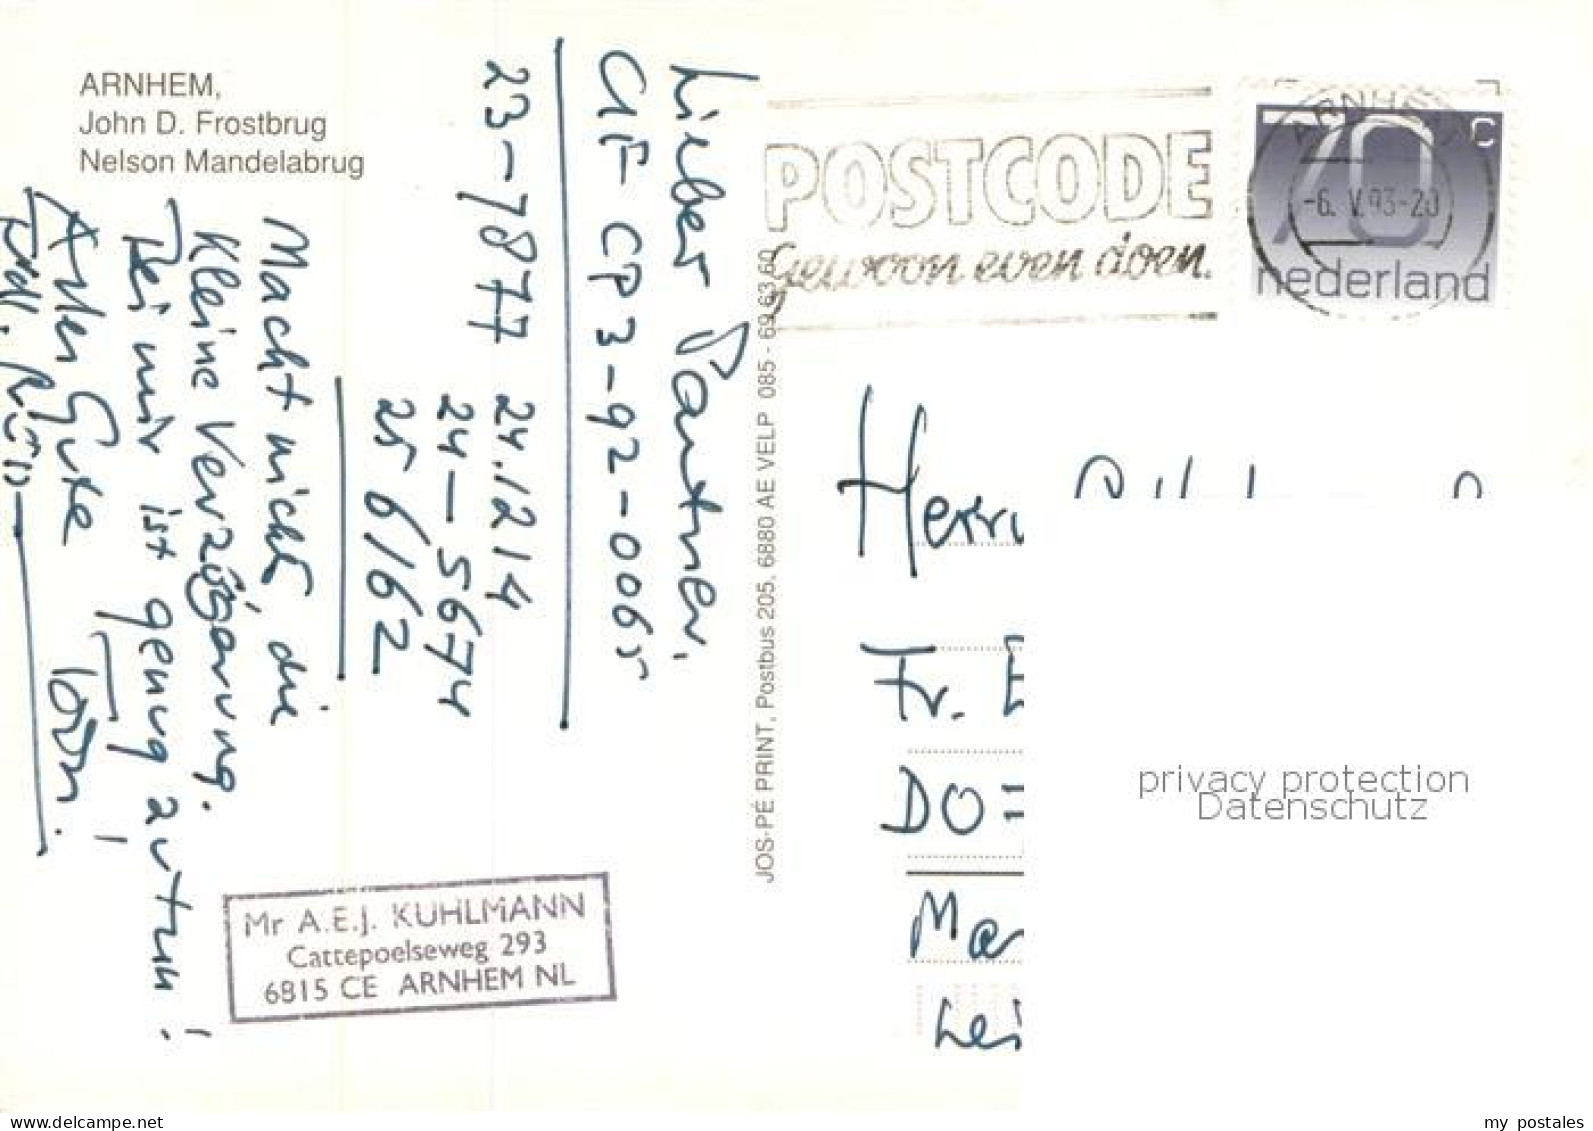 ARNHEM,
John D. Frostbrug
Nelson Mandelabrug
Lieber Partner,
CIF-CP3-92-0065
23-7877 24.1214
24-5674
25 6162
Macht nichts, die
Kleine Verzögerung.
Bei mir ist genug zu tun!
Alles Gute
Tom.
Mr A.E.J. KUHLMANN
Cattepoelseweg 293
6815 CE ARNHEM NL
JOS-PÉ PRINT, Postbus 205, 6880 AE VELP 085 - 69 63 60
POSTCODE
Gewoon even doen.
ARNHEM
-6. V.93-20
70 C
nederland
Herrn
Fr.
privacy protection
Datenschutz
my postales